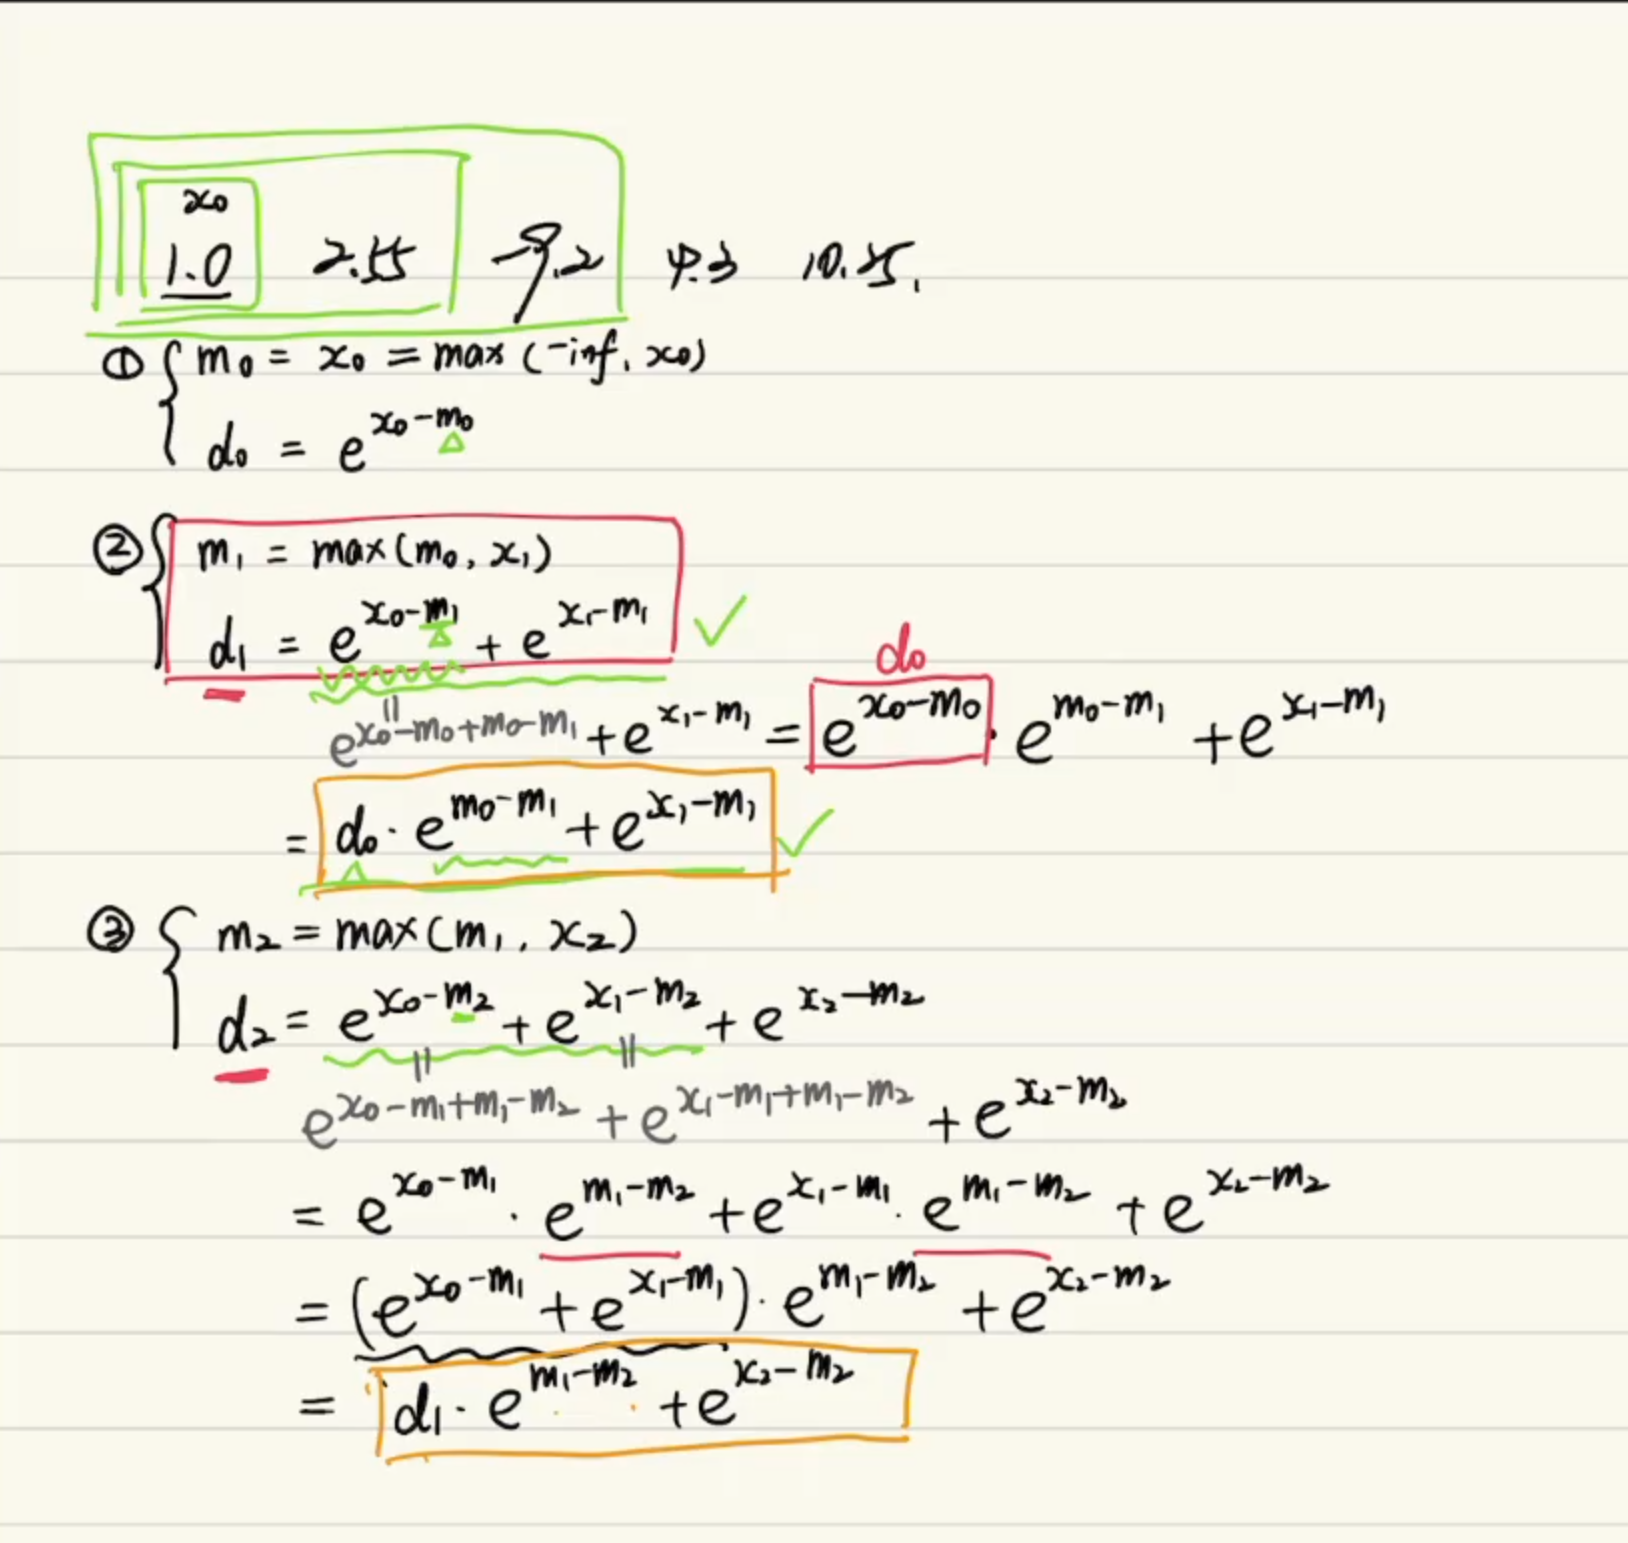 x₀
1.0 2.55 -9.2 4.3 10.25,
① { m₀ = x₀ = max (-inf, x₀)
d₀ = e^{x₀-m₀}
② { m₁ = max(m₀, x₁)
d₁ = e^{x₀-m₁} + e^{x₁-m₁} ✓
d₀
e^{x₀-m₀+m₀-m₁} + e^{x₁-m₁} = e^{x₀-m₀} · e^{m₀-m₁} + e^{x₁-m₁}
= d₀ · e^{m₀-m₁} + e^{x₁-m₁} ✓
③ { m₂ = max(m₁, x₂)
d₂ = e^{x₀-m₂} + e^{x₁-m₂} + e^{x₂-m₂}
e^{x₀-m₁+m₁-m₂} + e^{x₁-m₁+m₁-m₂} + e^{x₂-m₂}
= e^{x₀-m₁} · e^{m₁-m₂} + e^{x₁-m₁} · e^{m₁-m₂} + e^{x₂-m₂}
= (e^{x₀-m₁} + e^{x₁-m₁}) · e^{m₁-m₂} + e^{x₂-m₂}
= d₁ · e^{m₁-m₂} + e^{x₂-m₂}